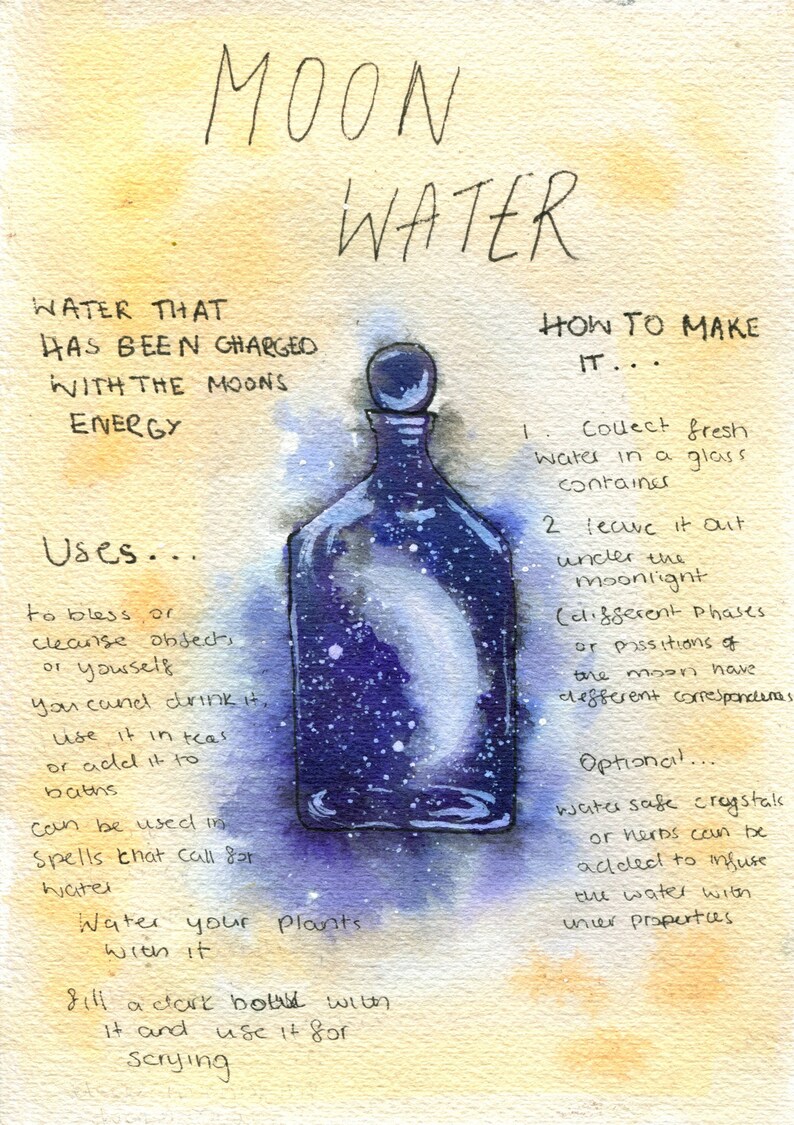 MOON
WATER
WATER THAT
HAS BEEN CHARGED
WITH THE MOONS
ENERGY
Uses...
to bless or
cleanse objects
or yourself
you cand drink it,
use it in teas
or add it to
baths
can be used in
spells that call for
water
Water your plants
with it
fill a dark bottle with
it and use it for
scrying
HOW TO MAKE
IT...
1. Collect fresh
water in a glass
container
2 leave it out
under the
moonlight
(different phases
or possitions of
the moon have
different correspondences
Optional...
water safe crystals
or herbs can be
added to infuse
the water with
properties